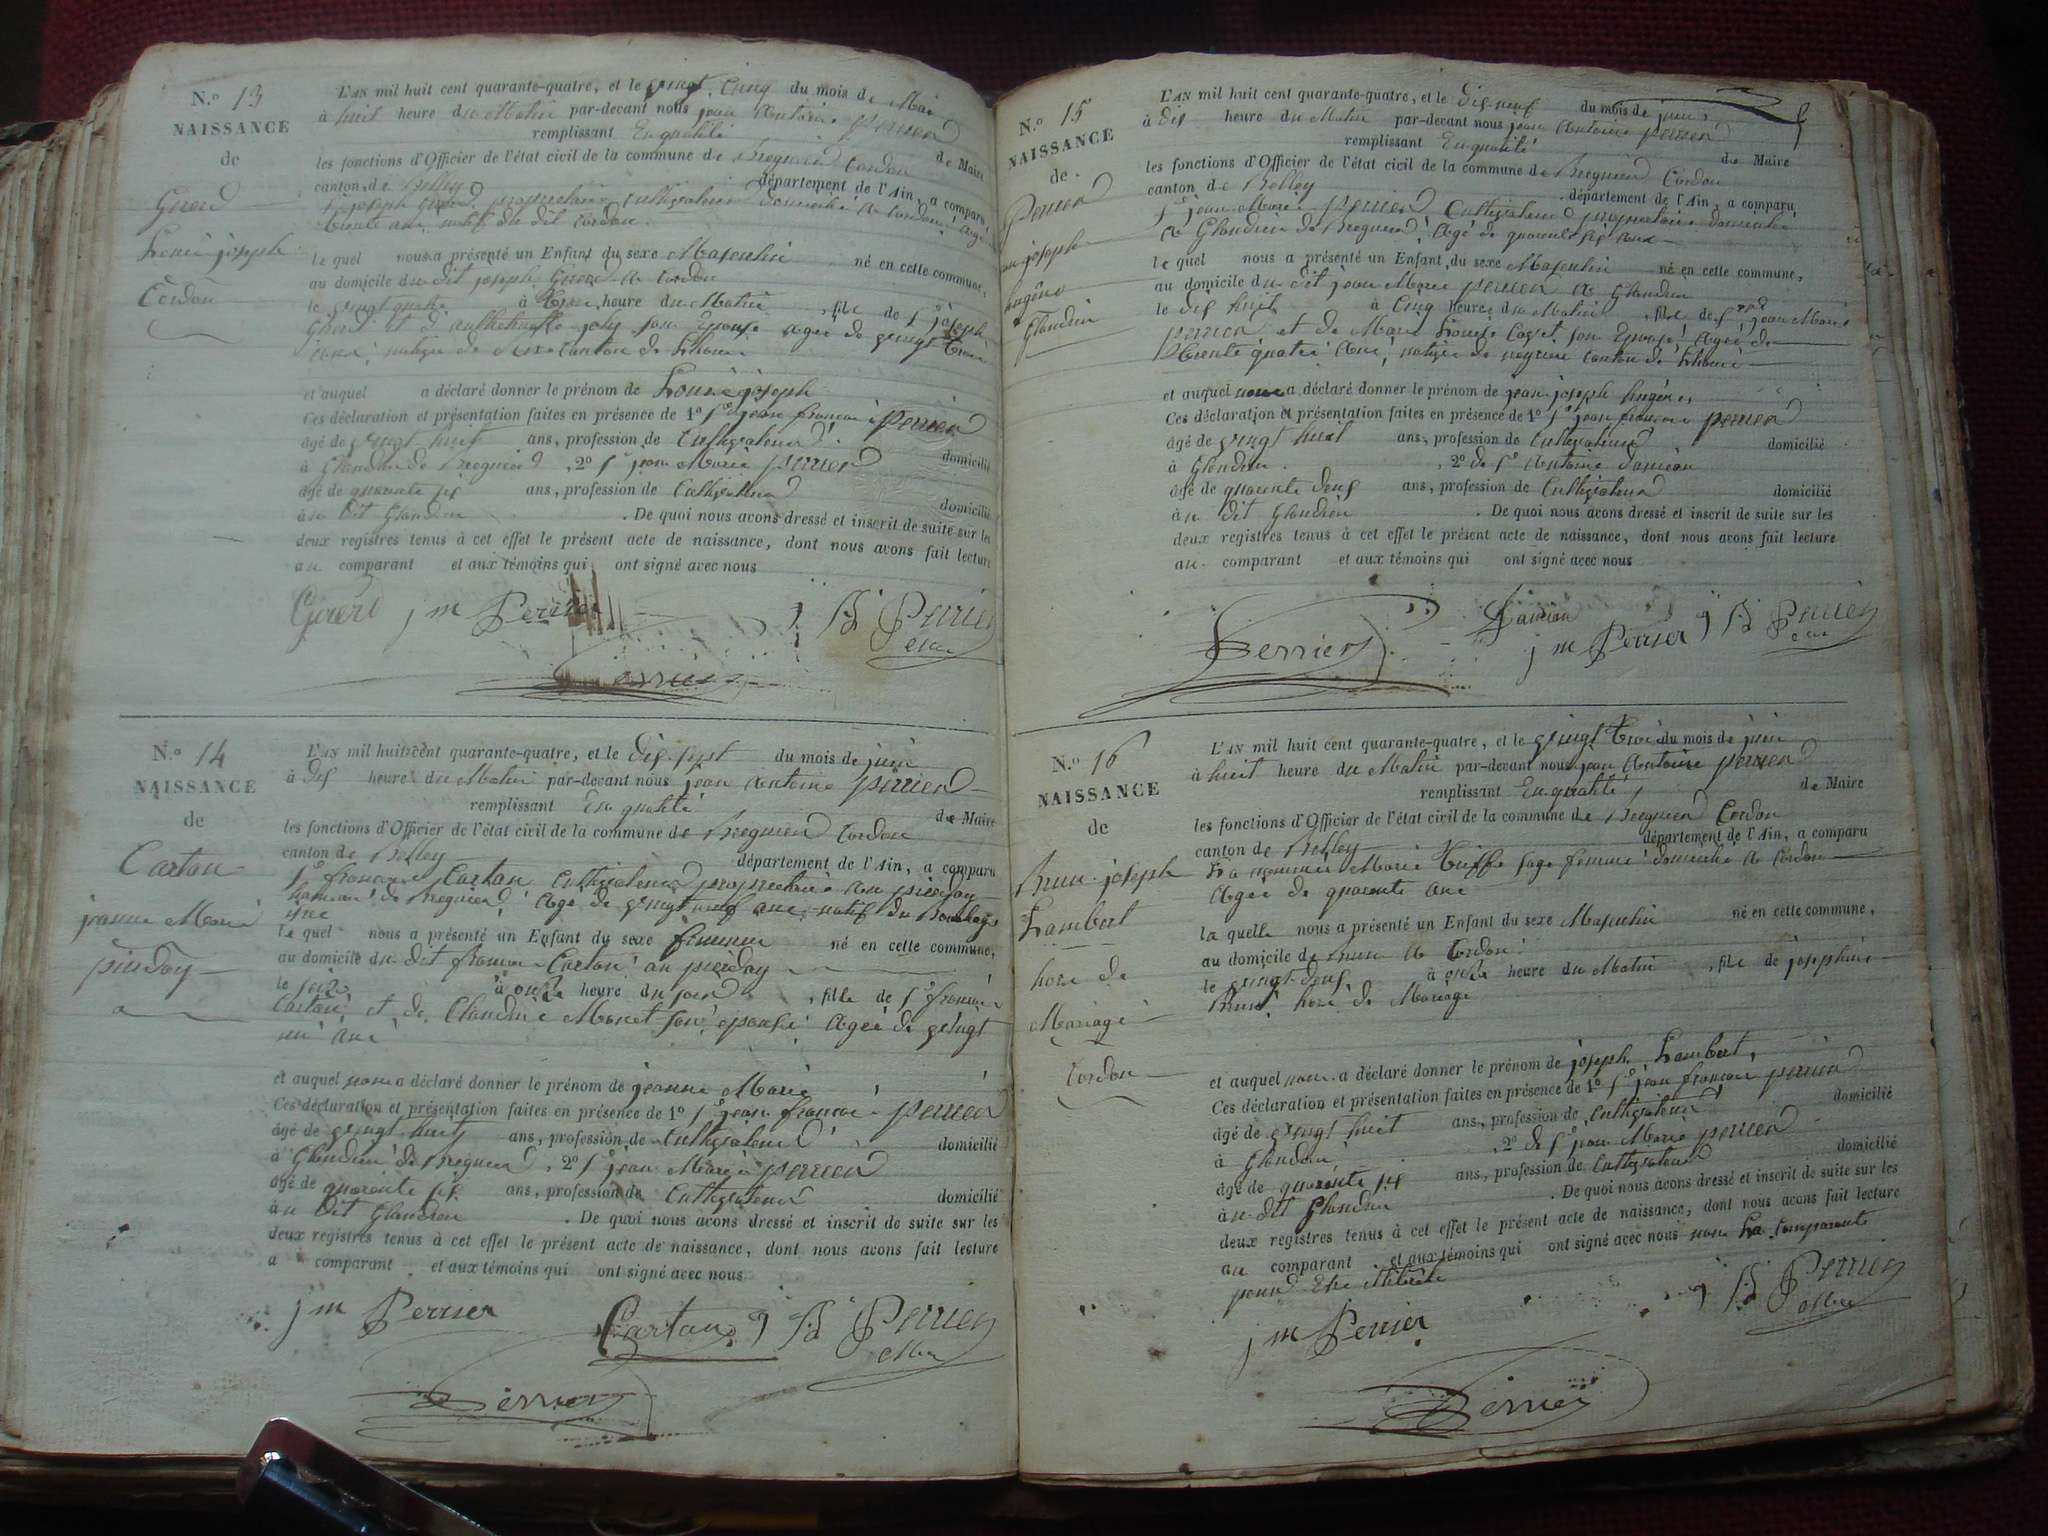 N.º 13
NAISSANCE
de
Girerd
Louis joseph
Cordon
L'AN mil huit cent quarante-quatre, et le vingt Cinq du mois de Mai
à huit heure du Matin par-devant nous jean Antoine Perrier
remplissant En qualité de Maire
les fonctions d'Officier de l'état civil de la commune de Bregnier Cordon
canton de Belley département de l'Ain, a comparu
joseph Girerd propriétaire cultivateur domicilié à Cordon, agé
trente ans natif du dit Cordon.
le quel nous a présenté un Enfant du sexe Masculin né en cette commune,
au domicile du dit joseph Girerd à Cordon
le vingt quatre à heure du Matin, fils de Sr joseph
Girerd et d' joly son Epouse agée de vingt trois
ans, native de canton de Lhuis
et auquel a déclaré donner le prénom de Louis joseph
Ces déclaration et présentation faites en présence de 1º Sr jean françois Perrier
âgé de vingt huit ans, profession de Cultivateur domicilié
à Glandieu de Bregnier, 2º Sr jean Marie Perrier
âgé de quarante six ans, profession de Cultivateur domicilié
à u dit Glandieu. De quoi nous avons dressé et inscrit de suite sur les
deux registres tenus à cet effet le présent acte de naissance, dont nous avons fait lecture
au comparant et aux témoins qui ont signé avec nous
Girerd j m Perrier j A Perrier
Perrier
N.º 14
NAISSANCE
de
Cartan
jeanne Marie
pierday
L'AN mil huit cent quarante-quatre, et le dix sept du mois de juin
à dix heure du Matin par-devant nous jean Antoine Perrier
remplissant En qualité de Maire
les fonctions d'Officier de l'état civil de la commune de Bregnier Cordon
canton de Belley département de l'Ain, a comparu
Sr françois Cartan Cultivateur propriétaire au pierday
hameau de Bregnier agé de vingt neuf ans, natif du Bouchage
isère
le quel nous a présenté un Enfant du sexe féminin né en cette commune,
au domicile du dit françois Cartan au pierday
le seize à onze heure du soir, fille de Sr françois
Cartan et de Claudine Moret son épouse agée de vingt
un ans
et auquel nous a déclaré donner le prénom de jeanne Marie
Ces déclaration et présentation faites en présence de 1º Sr jean françois Perrier
âgé de vingt huit ans, profession de Cultivateur domicilié
à Glandieu de Bregnier, 2º Sr jean Marie Perrier
âgé de quarante six ans, profession de Cultivateur domicilié
à u dit Glandieu. De quoi nous avons dressé et inscrit de suite sur les
deux registres tenus à cet effet le présent acte de naissance, dont nous avons fait lecture
a comparant et aux témoins qui ont signé avec nous
j m Perrier Cartan j A Perrier
Maire
Perrier
N.º 15
NAISSANCE
de
Perrier
jean joseph
Eugène
Glandieu
L'AN mil huit cent quarante-quatre, et le dix neuf du mois de juin
à dix heure du Matin par-devant nous jean Antoine Perrier
remplissant En qualité de Maire
les fonctions d'Officier de l'état civil de la commune de Bregnier Cordon
canton de Belley département de l'Ain, a comparu
Sr jean Marie Perrier Cultivateur propriétaire domicilié
à Glandieu de Bregnier, agé de quarante six ans
le quel nous a présenté un Enfant du sexe Masculin né en cette commune,
au domicile du dit jean Marie Perrier à Glandieu
le dix huit à Cinq heures du Matin, fils de Sr jean Marie
Perrier et de Marie Louise son Epouse, agée de
trente quatre ans, native de canton de Lhuis
et auquel nous a déclaré donner le prénom de jean joseph Eugène
Ces déclaration et présentation faites en présence de 1º Sr jean françois Perrier
âgé de vingt huit ans, profession de Cultivateur domicilié
à Glandieu. 2º de Sr Antoine Damian
âgé de quarante deux ans, profession de Cultivateur domicilié
à u dit Glandieu. De quoi nous avons dressé et inscrit de suite sur les
deux registres tenus à cet effet le présent acte de naissance, dont nous avons fait lecture
au comparant et aux témoins qui ont signé avec nous
Damian
Perrier j m Perrier j A Perrier
N.º 16
NAISSANCE
de
Brun joseph
Lambert
hors de
Mariage
Cordon
L'AN mil huit cent quarante-quatre, et le vingt trois du mois de juin
à huit heure du Matin par-devant nous jean Antoine Perrier
remplissant En qualité, de Maire
les fonctions d'Officier de l'état civil de la commune de Bregnier Cordon
canton de Belley département de l'Ain, a comparu
La nommée Marie sage femme domiciliée à Cordon
agée de quarante ans
la quelle nous a présenté un Enfant du sexe Masculin né en cette commune,
au domicile de Brun à Cordon
le vingt deux à onze heure du Matin, fils de joséphine
Brun, hors de Mariage
et auquel nous a déclaré donner le prénom de joseph Lambert,
Ces déclaration et présentation faites en présence de 1º Sr jean françois Perrier
âgé de vingt huit ans, profession de Cultivateur domicilié
à Glandieu, 2º de Sr jean Marie Perrier
âgé de quarante six ans, profession de Cultivateur domicilié
à u dit Glandieu. De quoi nous avons dressé et inscrit de suite sur les
deux registres tenus à cet effet le présent acte de naissance, dont nous avons fait lecture
au comparant et aux témoins qui ont signé avec nous non La Comparante
pour Etre illitérée
j m Perrier j A Perrier
Maire
Perrier